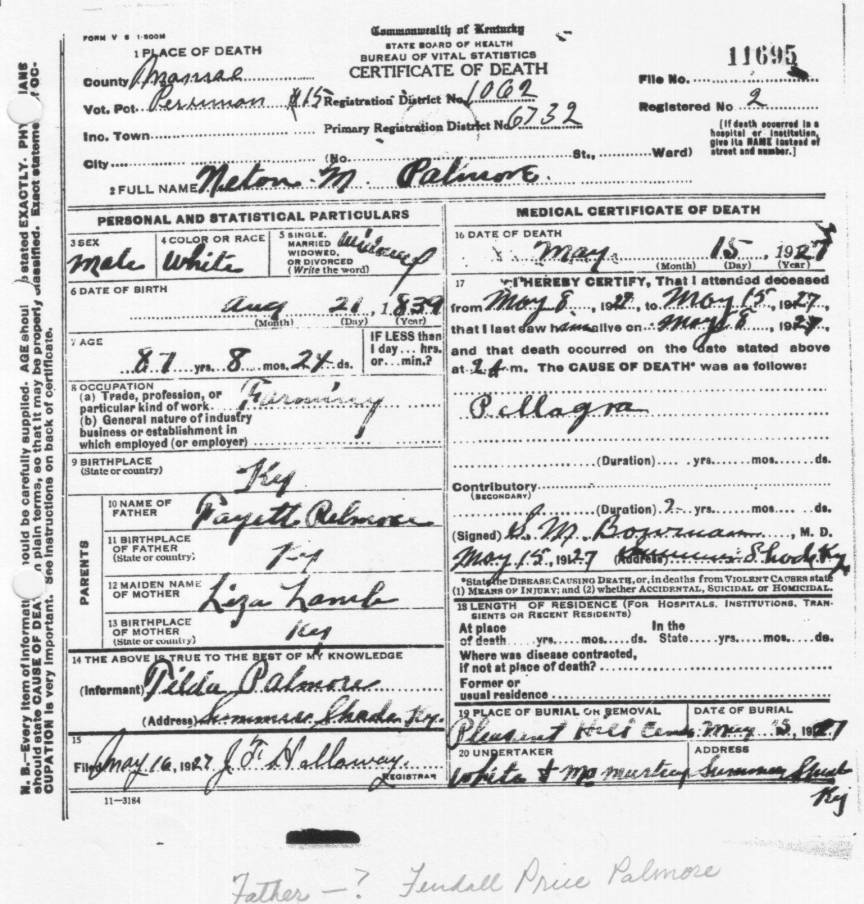 FORM V S 1-500M
Commonwealth of Kentucky
STATE BOARD OF HEALTH
BUREAU OF VITAL STATISTICS
CERTIFICATE OF DEATH
11695
File No.
Registered No 2
[If death occurred in a hospital or institution, give its NAME instead of street and number.]
1 PLACE OF DEATH
County
Vot. Pct. Perriman #15 Registration District No. 1062
Inc. Town Primary Registration District No. 6732
City (No. St., Ward)
2 FULL NAME Nelton M. Palmore
PERSONAL AND STATISTICAL PARTICULARS
3 SEX
Male
4 COLOR OR RACE
White
5 SINGLE, MARRIED WIDOWED, OR DIVORCED (Write the word)
Widowed
6 DATE OF BIRTH
Aug 21, 1839
(Month) (Day) (Year)
7 AGE
87 yrs. 8 mos. 24 ds.
IF LESS than 1 day... hrs. or... min.?
8 OCCUPATION
(a) Trade, profession, or particular kind of work Farming
(b) General nature of industry business or establishment in which employed (or employer)
9 BIRTHPLACE
(State or country)
Ky
PARENTS
10 NAME OF FATHER
Fayett Palmore
11 BIRTHPLACE OF FATHER
(State or country)
Ky
12 MAIDEN NAME OF MOTHER
Liza Lamb
13 BIRTHPLACE OF MOTHER
(State or country)
Ky
14 THE ABOVE IS TRUE TO THE BEST OF MY KNOWLEDGE
(Informant) Tilda Palmore
(Address) Summer Shade Ky.
15
Filed May 16, 1927 J F Hallaway.
REGISTRAR
11—3184
MEDICAL CERTIFICATE OF DEATH
16 DATE OF DEATH
May 15, 1927
(Month) (Day) (Year)
17 I HEREBY CERTIFY, That I attended deceased
from May 8, 192 , to May 15, 1927,
that I last saw him alive on May 8, 1927,
and that death occurred on the date stated above
at 2 A m. The CAUSE OF DEATH* was as follows:
Pellagra
(Duration) yrs. mos. ds.
Contributory
(SECONDARY)
(Duration) 2 yrs. mos. ds.
(Signed) S. M. Bowman, M. D.
May 15, 1927 (Address) Summer Shade Ky
*State the DISEASE CAUSING DEATH, or, in deaths from VIOLENT CAUSES state
(1) MEANS OF INJURY; and (2) whether ACCIDENTAL, SUICIDAL or HOMICIDAL.
18 LENGTH OF RESIDENCE (FOR HOSPITALS, INSTITUTIONS, TRANSIENTS OR RECENT RESIDENTS)
At place of death yrs. mos. ds. In the State yrs. mos. ds.
Where was disease contracted, if not at place of death?
Former or usual residence
19 PLACE OF BURIAL OR REMOVAL
Pleasant Hill Cem
DATE OF BURIAL
May 15, 1927
20 UNDERTAKER
White & McMurtrey
ADDRESS
Summer Shade Ky
N. B.—Every item of information should be carefully supplied. AGE should be stated EXACTLY. PHYSICIANS
should state CAUSE OF DEATH in plain terms, so that it may be properly classified. Exact statement of OC-
CUPATION is very important. See instructions on back of certificate.
Father — ? Fendall Price Palmore